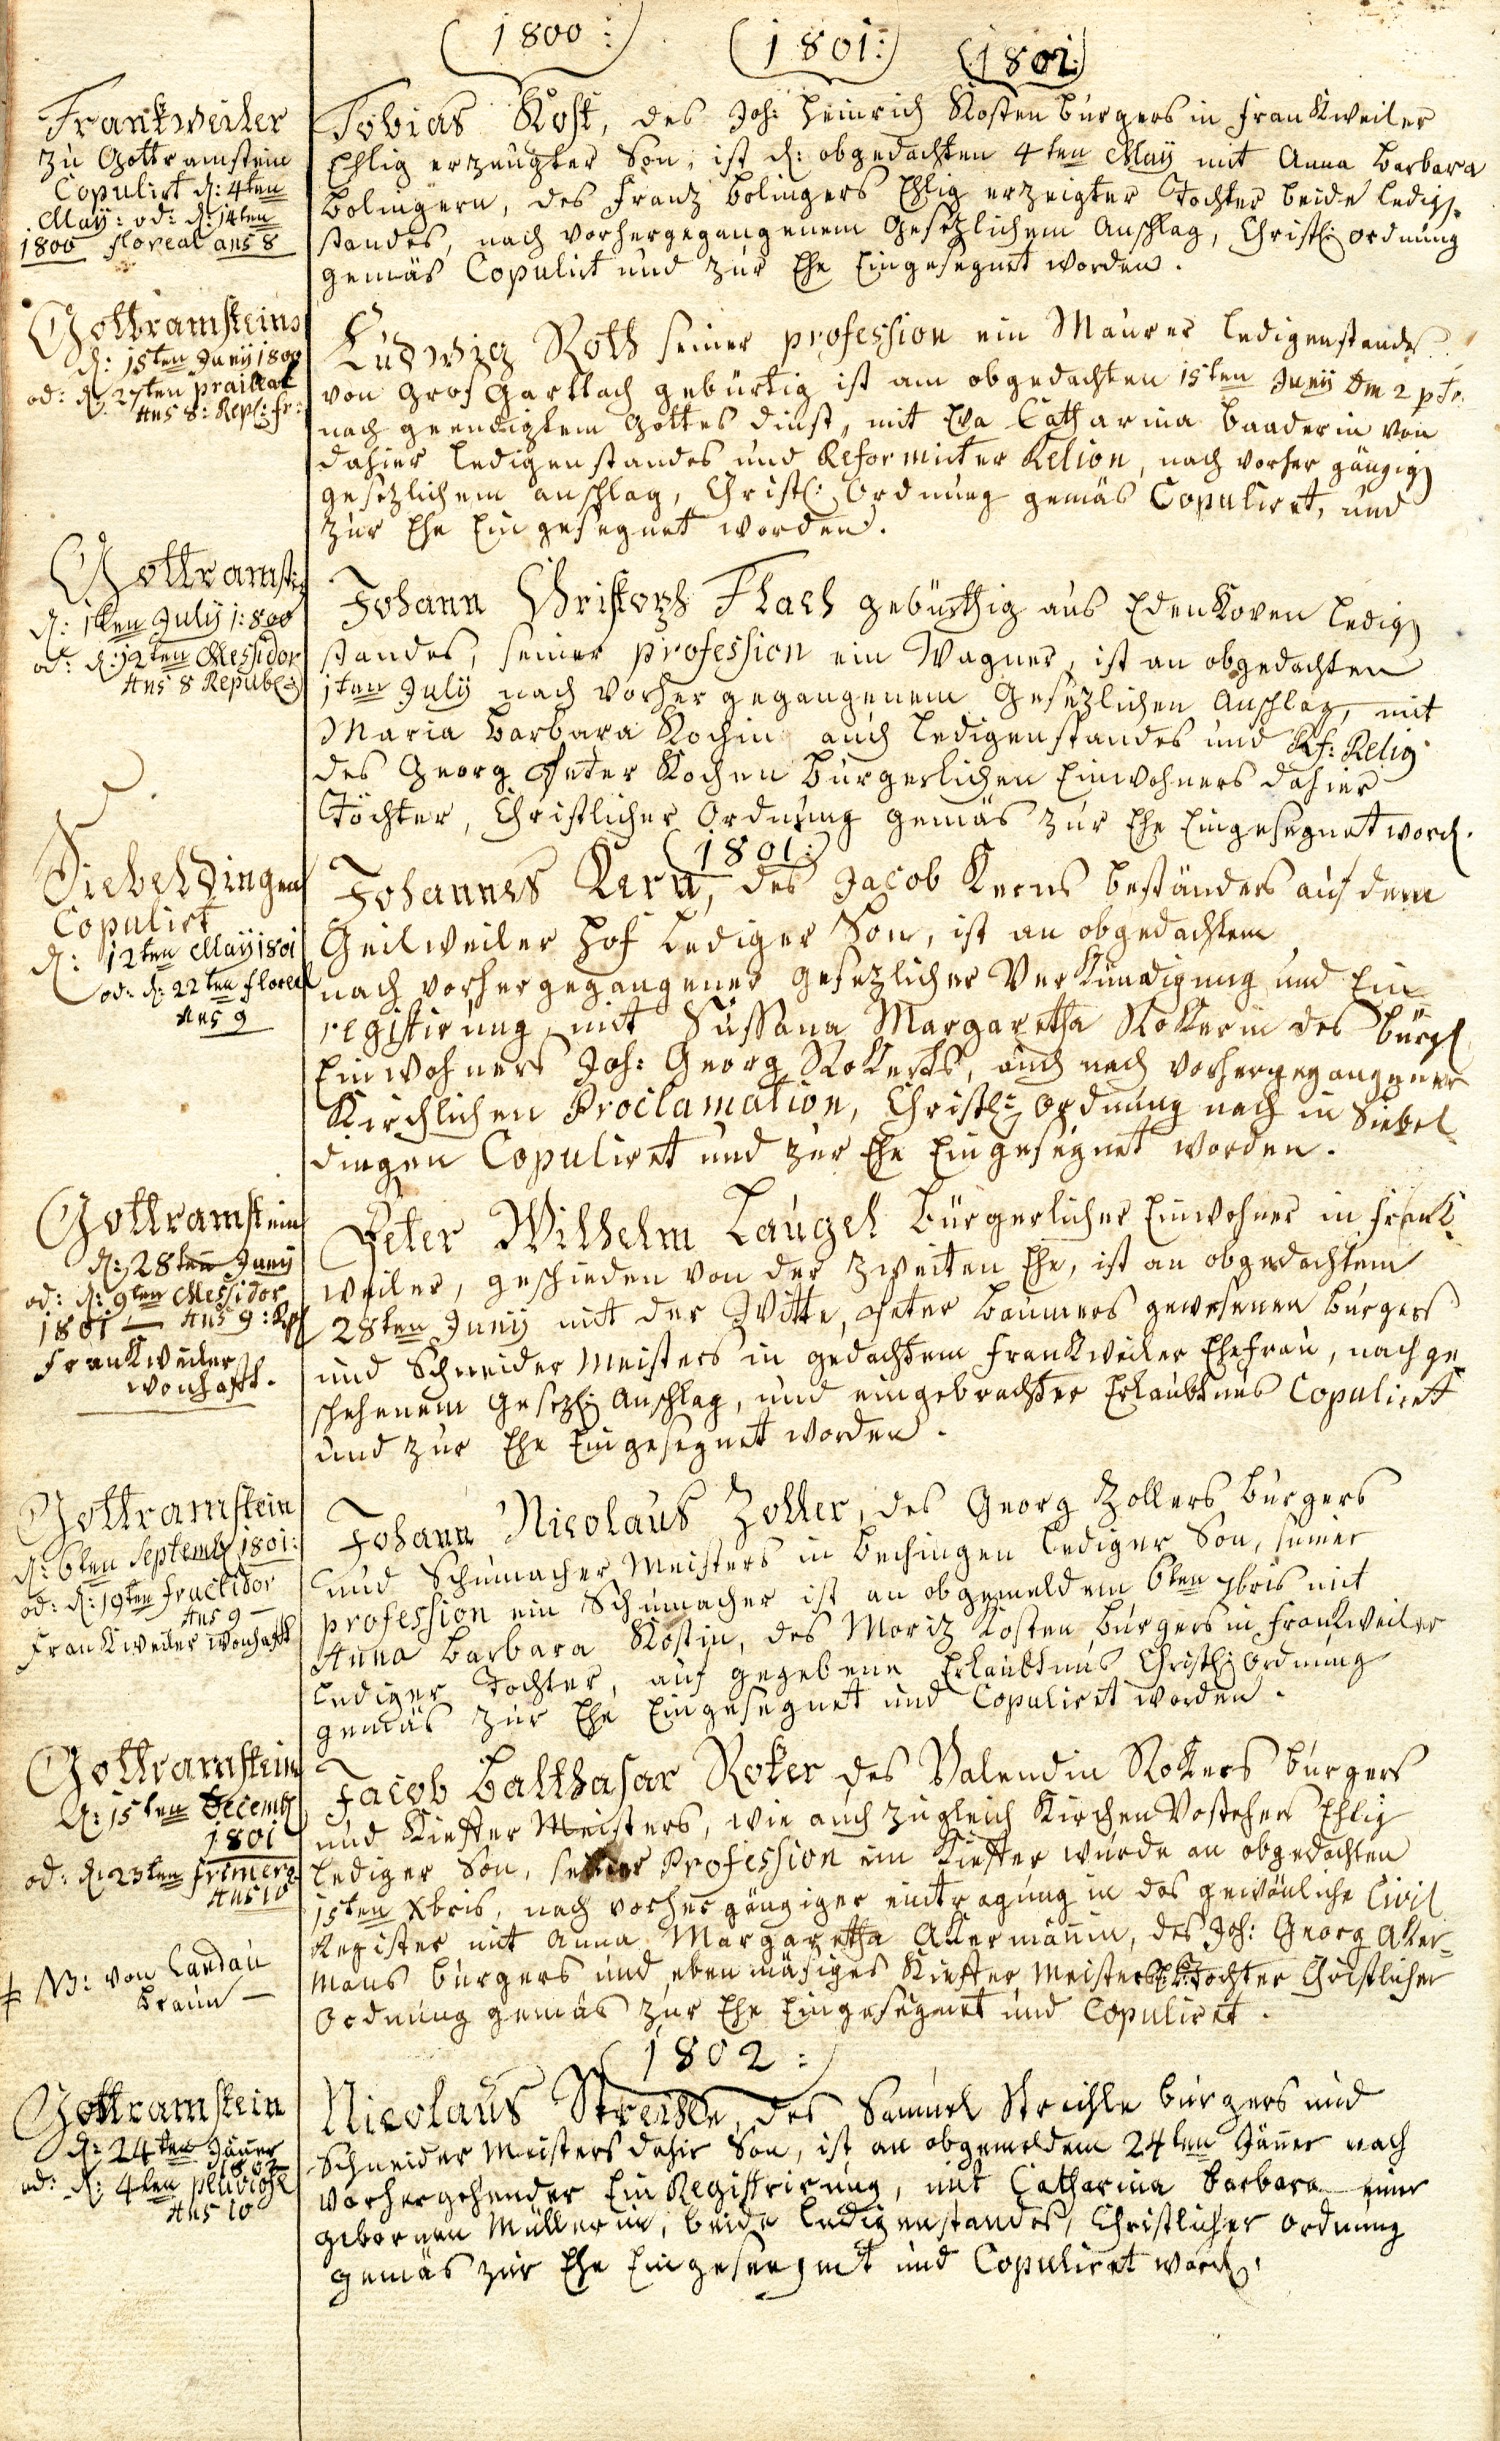 (1800:) (1801:) (1802:)
Frankweiler
zu Gottramstein
Copulirt d: 4ten
May: od: d: 14ten
1800 floreal ans 8
Tobias Kost, des Joh: Heinrich Kosten burgers in Frankweiler
Ehlig erzeugter Son, ist d: obgedachten 4ten May mit Anna Barbara
Bolingern, des Franz Bolingers Ehlig erzeigter Tochter beide ledig
standes, nach vorhergegangenem Gesezlichem Anschlag, Christl: ordnung
gemäs Copulirt und zur Ehe Eingesegnet worden.
Gottramsteins
d: 15ten Juny 1800
od: d: 27ten prairial
Ans 8: Repl: fr:
Ludwig Roth seiner profession ein Maurer ledigenstandes
von Gros Garttach gebürtig ist am obgedachten 15ten Juny Dm 2 p Tr.
nach geendigtem Gottes dinst, mit Eva Catharina Baaderin von
dahier ledigenstandes und Reformirter Relion, nach vorher gängig
gesezlichem anschlag, Christl: Ordnung gemäs Copuliret, und
zur Ehe Eingesegnet worden.
Gottramst:
d: 1ten July 1:800
od: d: 12ten Messidor
Ans 8 Republ:
Johann Christoph Flach gebürthig aus Edenkoven ledig
standes, seiner profession ein Wagner, ist an obgedachten
1ten July nach vorher gegangenem Gesezlichen Anschlag, mit
Maria Barbara Kochin auch ledigenstandes und Rf: Relig
des Georg Peter Kochen bürgerlichen Einwohners dahier
Töchter, Christlicher Ordnung gemäs zur Ehe Eingesegnet word.
(1801:)
Siebeldingen
Copulirt
d: 12ten May 1801
od: d: 22ten floreal
Ans 9
Johannes Kern, des Jacob Kerns beständers auf dem
Geilweiler Hof lediger Son, ist an obgedachtem
nach vorhergegangener gesezlicher Verkündigung und Ein
registirung mit Sussana Margaretha Rokerin des bürgl
Einwohners Joh: Georg Rokers, auch nach vorhergegangener
Kirchlichen Proclamation, Christl: Ordnung nach in Siebel
dingen Copuliret und zur Ehe Eingesegnet worden.
Gottramstein
d: 28ten Juny
od: d: 9ten Messidor
1801 — Ans 9: Rpl
Frankweiler
wonhafft.
Peter Wilhelm Laugel bürgerlicher Einwohner in Frank
weiler, geschieden von der zweiten Ehe, ist an obgedachtem
28ten Juny mit der Witte, Peter Baumers gewesenen burgers
und Schneider Meisters in gedachtem Frankweiler Ehefrau, nach ge
schehenem Gesezl: Anschlag, und eingebrachter Erlaubtnus Copuliret
und zur Ehe Eingesegnet worden.
Gottramstein
d: 6ten Septembr 1801:
od: d: 19ten fructidor
Ans 9 —
Frankweiler wonhafft
Johann Nicolaus Zoller, des Georg Zollers burgers
und Schumacher Meisters in Bechingen lediger Son, seiner
profession ein Schumacher ist an obgemeldem 6ten 7bris mit
Anna Barbara Kostin, des Moriz Kosten burgers in Frankweiler
lediger Tochter, auf gegebene Erlaubtnus Christl: Ordnung
gemäs zur Ehe Eingesegnet und Copuliret worden.
Gottramstein
d: 15ten Decembr
1801
od: d: 23ten frimers
Ans 10
Jacob Balthasar Roker des Valendin Rokers burgers
und Kieffer Meisters, wie auch zugleich Kirchen Vostehers Ehlig
lediger Son, seiner Profession ein Kieffer wurde an obgedachten
15ten Xbris, nach vorher gängiger eintragung in das gewönliche Civil
Register mit Anna Margaretha Akermännin, des Joh: Georg Aker=
mans burgers und eben mäsiges Kieffer Meisters Tochter Christlicher
Ordnung gemäs zur Ehe Eingesegnet und Copuliret.
‡ NB: von Landau
Braun —
(1802:)
Gottramstein
d: 24ten Jäner
1802
od: d: 4ten pluviose
Ans 10
Nicolaus Streihle, des Samuel Streihle burgers und
Schneider Meisters dahir Son, ist an obgemeldem 24ten Jäner nach
vorhergehender Ein Registrirung, mit Catharina Barbara einer
gebornen Müllerin, beide ledigenstandes, Christlicher Ordnung
gemäs zur Ehe Eingesegnet und Copuliret word.